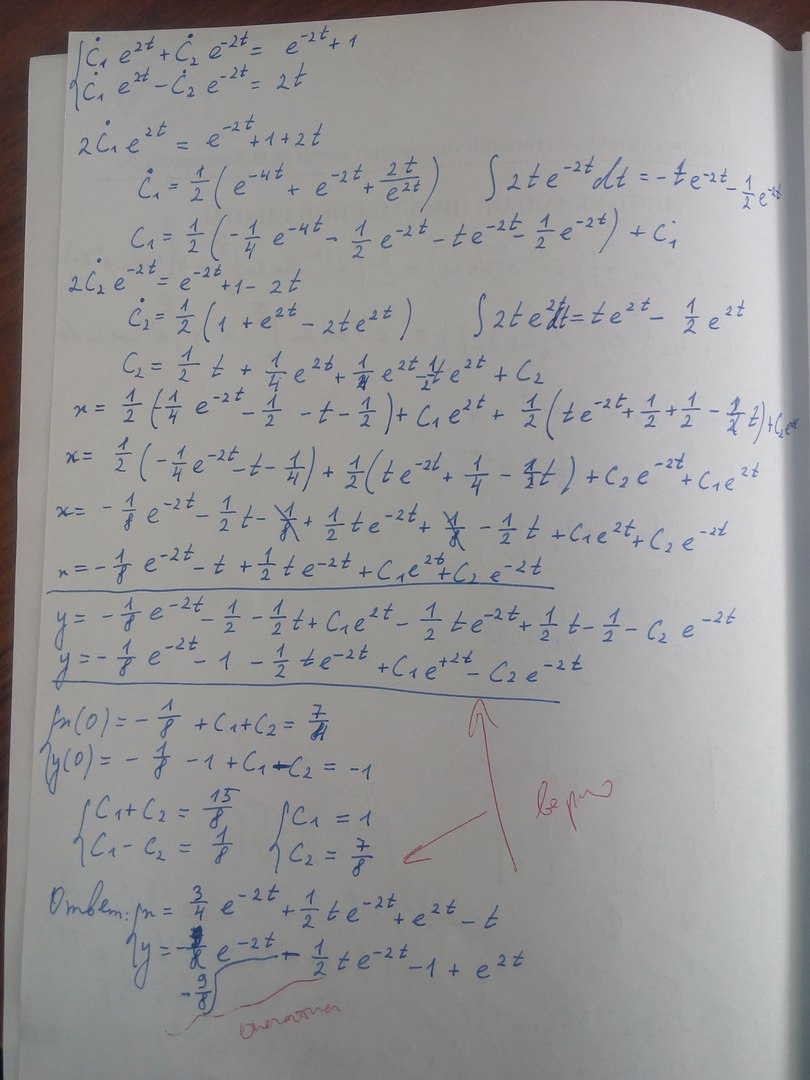 { Ċ₁ e^{2t} + Ċ₂ e^{-2t} = e^{-2t} + 1
{ Ċ₁ e^{2t} - Ċ₂ e^{-2t} = 2t
2Ċ₁ e^{2t} = e^{-2t} + 1 + 2t
Ċ₁ = 1/2 (e^{-4t} + e^{-2t} + 2t/e^{2t}) ∫ 2t e^{-2t} dt = -t e^{-2t} - 1/2 e^{-2t}
C₁ = 1/2 (-1/4 e^{-4t} - 1/2 e^{-2t} - t e^{-2t} - 1/2 e^{-2t}) + C₁
2Ċ₂ e^{-2t} = e^{-2t} + 1 - 2t
Ċ₂ = 1/2 (1 + e^{2t} - 2t e^{2t}) ∫ 2t e^{2t} dt = t e^{2t} - 1/2 e^{2t}
C₂ = 1/2 t + 1/4 e^{2t} + 1/4 e^{2t} - 1/2 t e^{2t} + C₂
x = 1/2 (1/4 e^{-2t} - 1/2 - t - 1/2) + C₁ e^{2t} + 1/2 (t e^{-2t} + 1/2 + 1/2 - 1/2 t) + C₂ e
x = 1/2 (-1/4 e^{-2t} - t - 1/4) + 1/2 (t e^{-2t} + 1/4 - 1/2 t) + C₂ e^{-2t} + C₁ e^{2t}
x = -1/8 e^{-2t} - 1/2 t - 1/8 + 1/2 t e^{-2t} + 1/8 - 1/2 t + C₁ e^{2t} + C₂ e^{-2t}
x = -1/8 e^{-2t} - t + 1/2 t e^{-2t} + C₁ e^{2t} + C₂ e^{-2t}
y = -1/8 e^{-2t} - 1/2 - 1/2 t + C₁ e^{2t} - 1/2 t e^{-2t} + 1/2 t - 1/2 - C₂ e^{-2t}
y = -1/8 e^{-2t} - 1 - 1/2 t e^{-2t} + C₁ e^{+2t} - C₂ e^{-2t}
{ x(0) = -1/8 + C₁ + C₂ = 7/4
{ y(0) = -1/8 - 1 + C₁ - C₂ = -1
{ C₁ + C₂ = 15/8 { C₁ = 1
{ C₁ - C₂ = 1/8 { C₂ = 7/8
верно
Ответ: { x = 3/4 e^{-2t} + 1/2 t e^{-2t} + e^{2t} - t
{ y = - e^{-2t} - 1/2 t e^{-2t} - 1 + e^{2t}
-9/8
опечатка